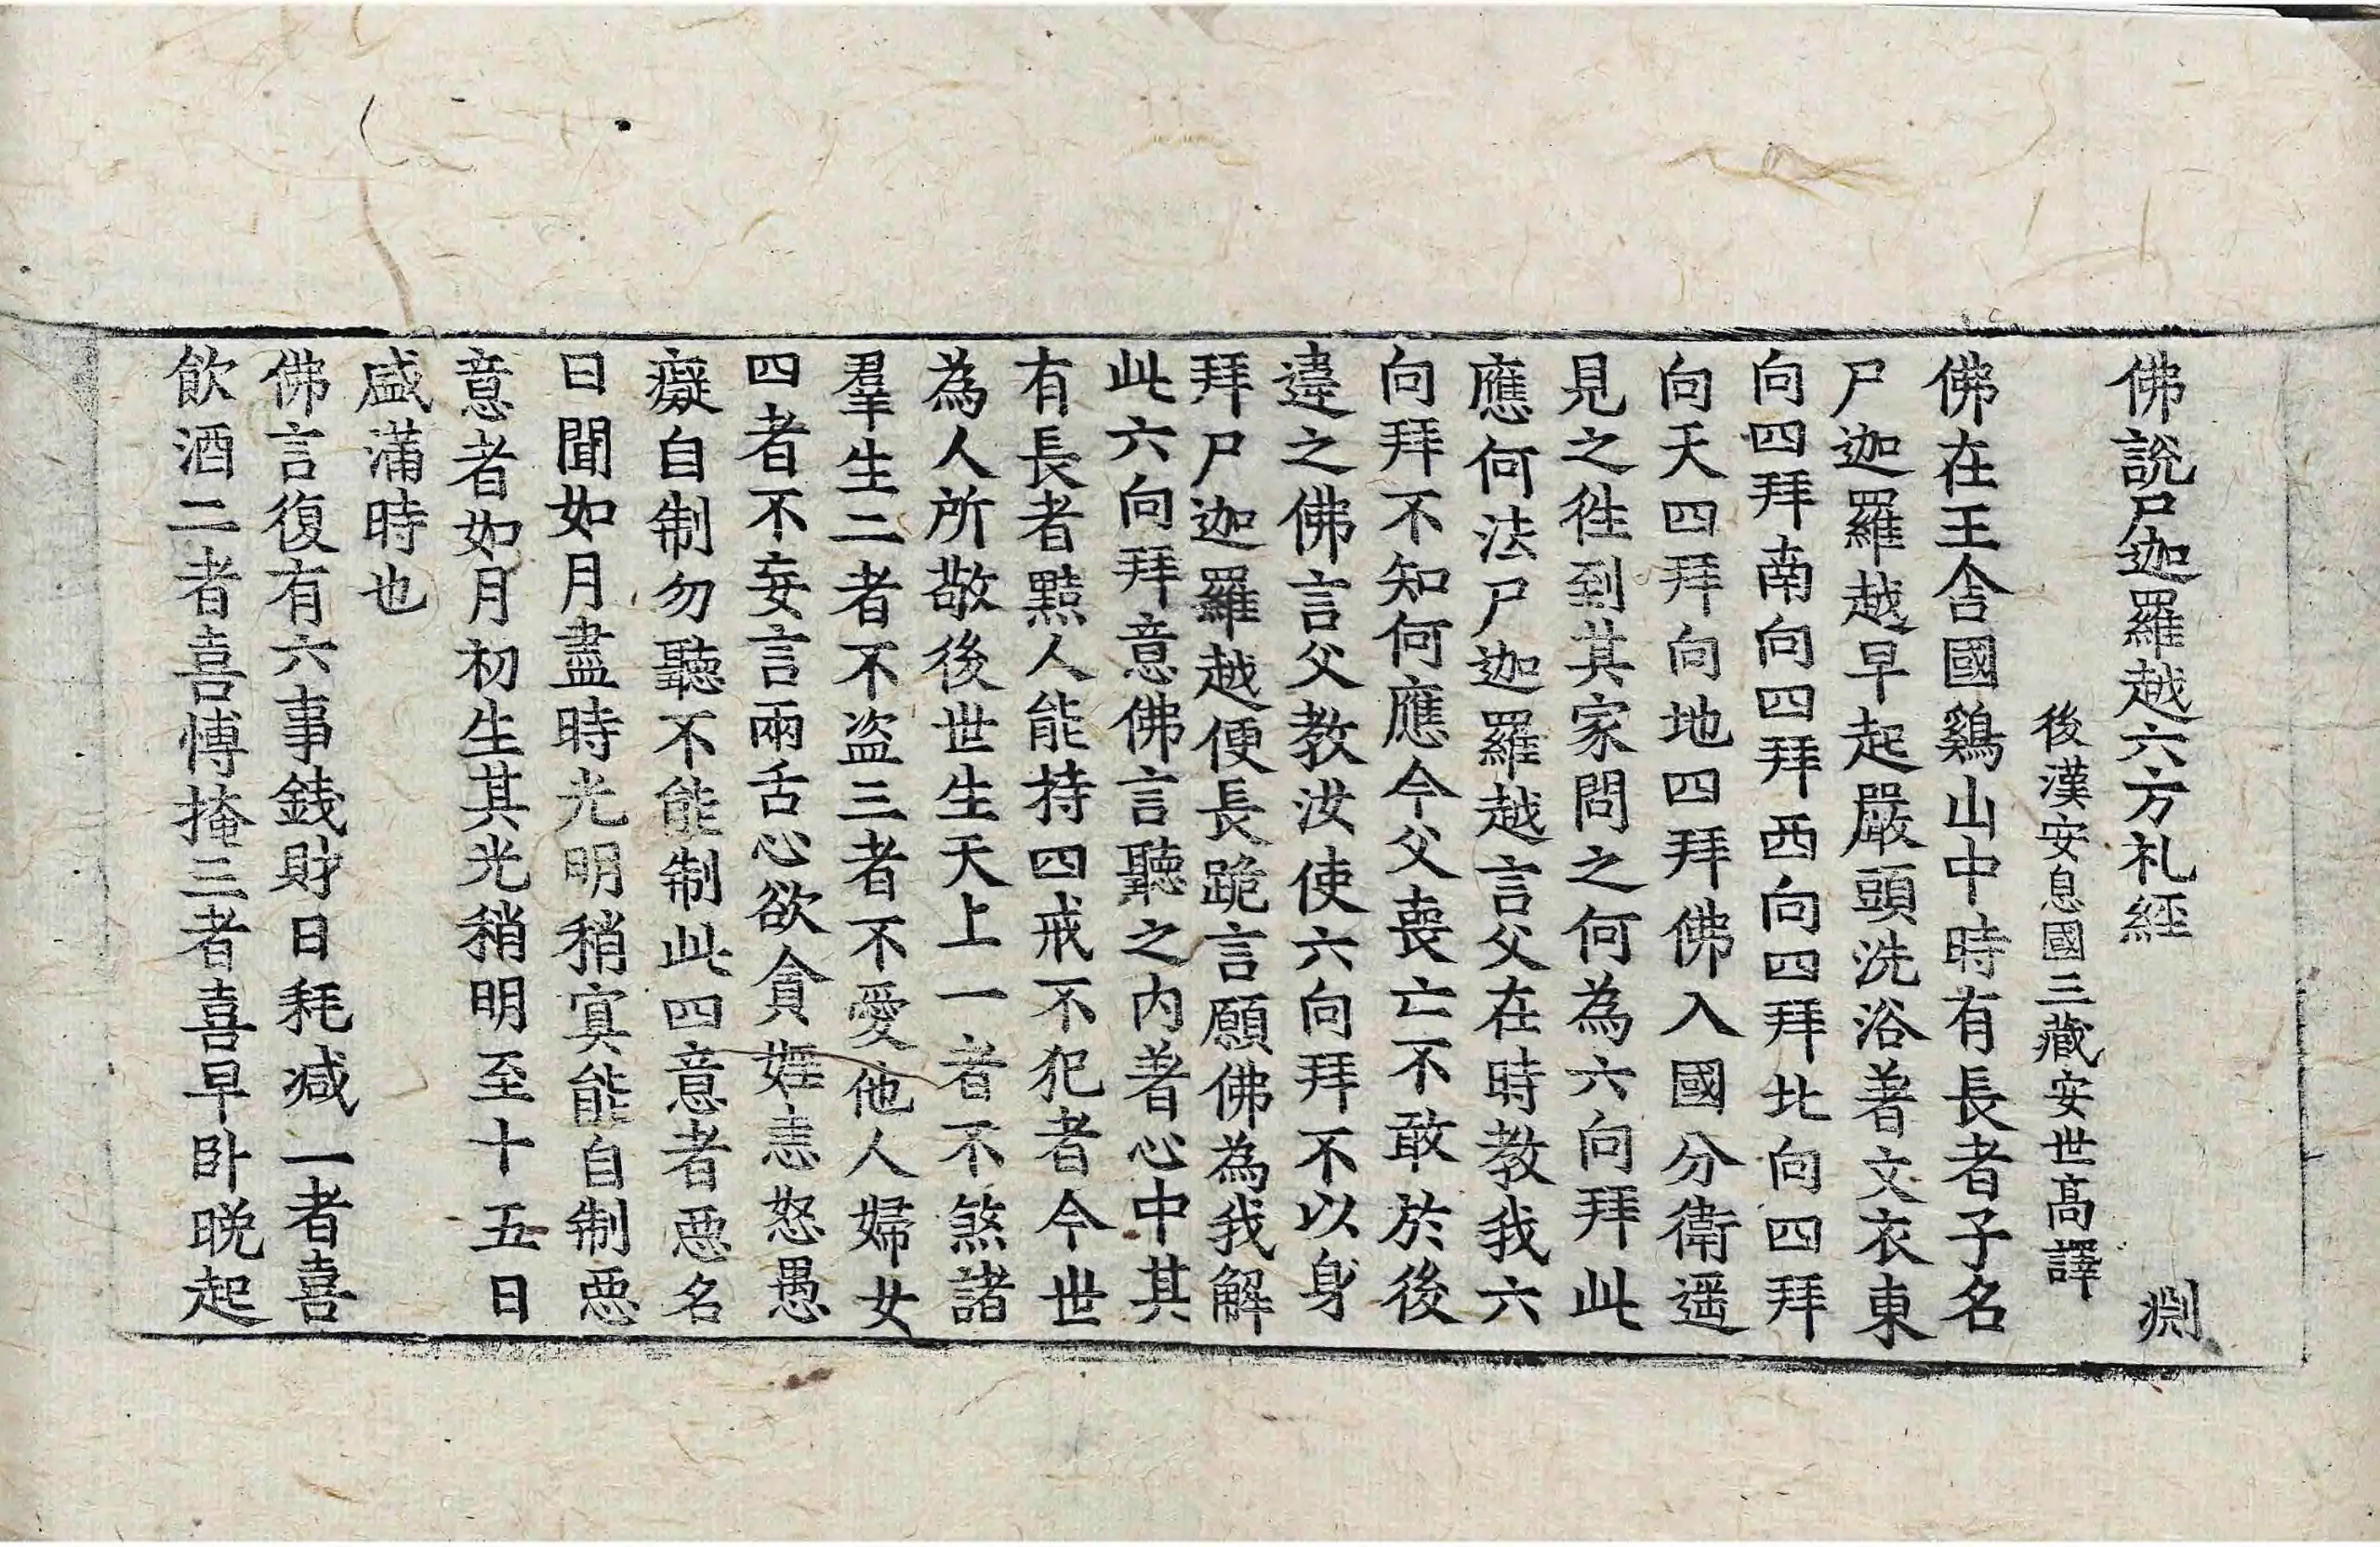 佛說尸迦羅越六方礼經 渕
後漢安息國三藏安世高譯
佛在王舍國鷄山中時有長者子名
尸迦羅越早起嚴頭洗浴著文衣東
向四拜南向四拜西向四拜北向四拜
向天四拜向地四拜佛入國分衛遥
見之徃到其家問之何為六向拜此
應何法尸迦羅越言父在時教我六
向拜不知何應今父喪亡不敢於後
違之佛言父教汝使六向拜不以身
拜尸迦羅越便長跪言願佛為我解
此六向拜意佛言聽之内著心中其
有長者黠人能持四戒不犯者今世
為人所敬後世生天上一者不煞諸
羣生二者不盗三者不愛他人婦女
四者不妄言兩舌心欲貪婬恚怒愚
癡自制勿聽不能制此四意者惡名
日聞如月盡時光明稍冥能自制惡
意者如月初生其光稍明至十五日
盛滿時也
佛言復有六事錢財日耗减一者喜
飲酒二者喜愽掩三者喜早卧晚起